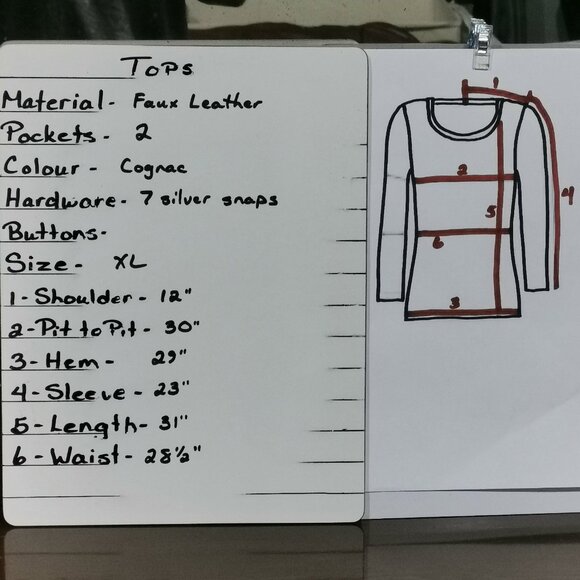 Tops
Material - Faux Leather
Pockets - 2
Colour - Cognac
Hardware - 7 silver snaps
Buttons -
Size - XL
1 - Shoulder - 12"
2 - Pit to Pit - 30"
3 - Hem - 29"
4 - Sleeve - 23"
5 - Length - 31"
6 - Waist - 28½"
1
2
4
5
6
3